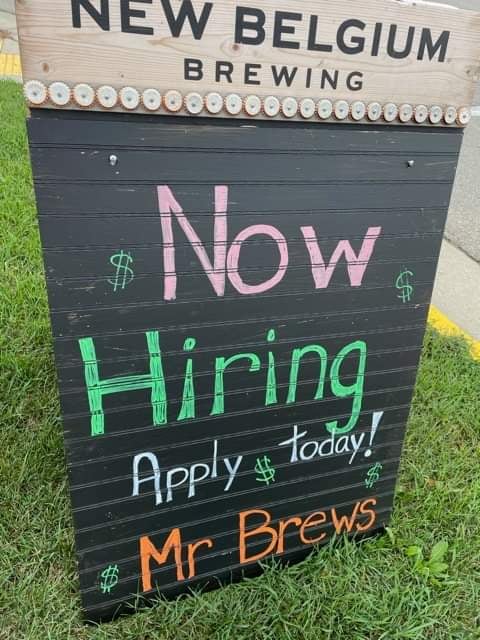 NEW BELGIUM
BREWING
Now
$ $
Hiring
Apply $ today!
$
$ Mr Brews